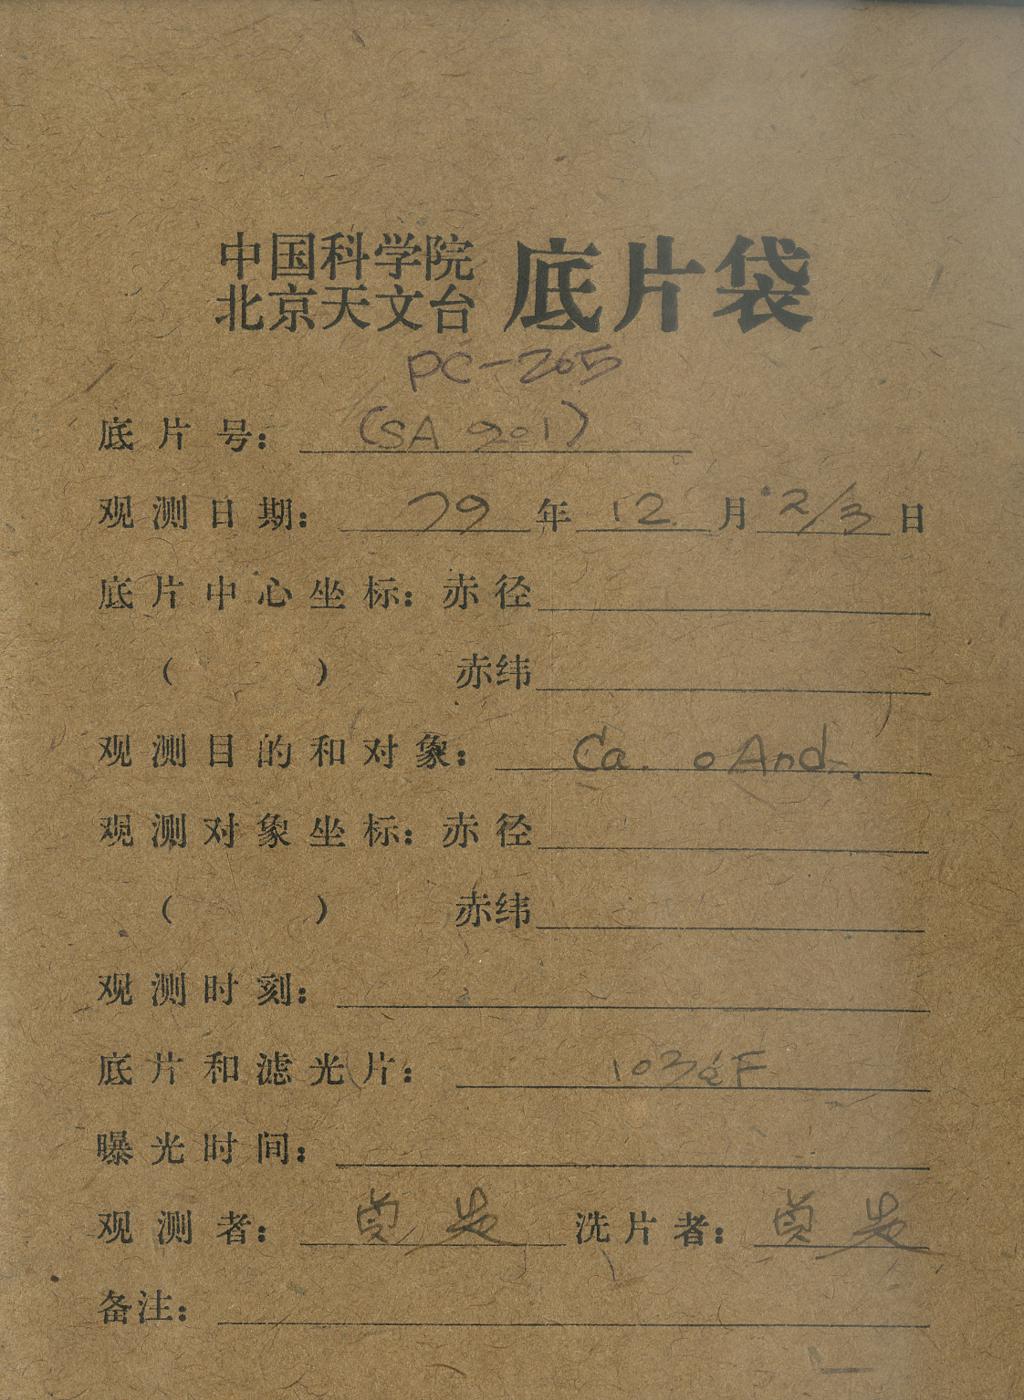 中国科学院
北京天文台 底片袋
PC-205
底片号: (SA 201)
观测日期: 79年12月2/3日
底片中心坐标: 赤径
( ) 赤纬
观测目的和对象: Ca. o And.
观测对象坐标: 赤径
( ) 赤纬
观测时刻:
底片和滤光片: 103aF
曝光时间:
观测者: 洗片者:
备注: